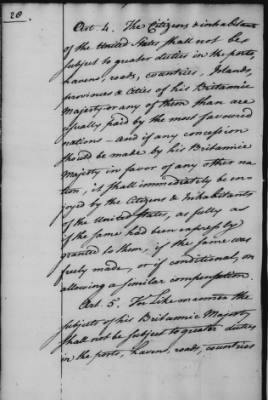 28.
Art. 4. The Citizens & inhabitants
of the United States shall not be
subject to greater duties in the ports,
havens, roads, countries, Islands,
provinces & Cities of his Britannic
Majesty or any of them than are
usually paid by the most favoured
nations — and if any concession
should be made by his Britannic
Majesty in favor of any other na-
tion, it shall immediately be en-
joyed by the Citizens & Inhabitants
of the United States, as fully as
if the same had been expressly
granted to them, if the same was
freely made, or if conditional, on
allowing a similar compensation
Art. 5. In like manner the
subjects of his Britannic Majesty
shall not be subject to greater duties
in the ports, havens, roads, countries